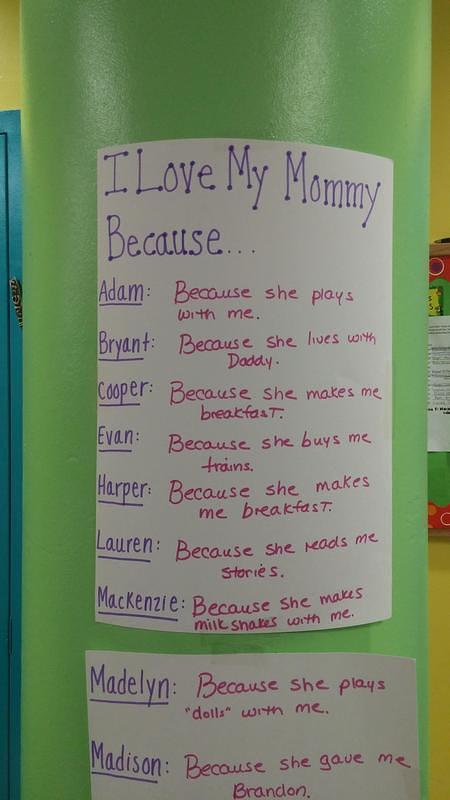 I Love My Mommy
Because...
Adam: Because she plays
with me.
Bryant: Because she lives with
Daddy.
Cooper: Because she makes me
breakfast.
Evan: Because she buys me
trains.
Harper: Because she makes
me breakfast.
Lauren: Because she reads me
stories.
Mackenzie: Because she makes
milk shakes with me.
Madelyn: Because she plays
"dolls" with me.
Madison: Because she gave me
Brandon.